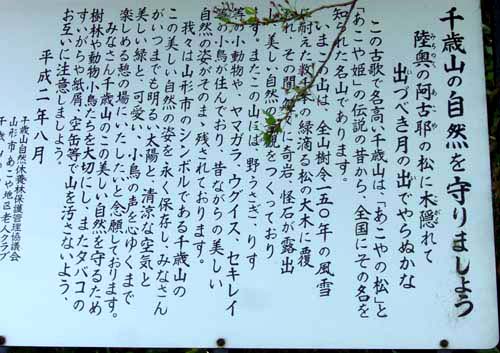 千歳山の自然を守りましょう
陸奥の阿古耶の松に木隠れて
出づべき月の出でやらぬかな
この古歌で名高い千歳山は、「あこやの松」と
「あこや姫」の伝説の昔から、全国にその名を
知られた山であります。
いま、この山は、全山樹令一五〇年の風雪
に耐えた数千本の緑滴る松の大木に覆
われ、その間に奇岩・怪石が露出
し美しい自然の景観をつくっており
ます。またこの山には、野うさぎ、りす
等の小動物や、ヤマガラ、ウグイス、セキレイ
等の小鳥が住んでおり、昔ながらの美しい
自然の姿がそのまゝ残されております。
我々は山形市のシンボルである千歳山の
この美しい自然の姿を永く保存し、みなさん
がいつまでも明るい太陽と、清涼な空気と
美しい緑と、可愛い、小鳥の声を心ゆくまで
楽しめる憩の場にいたしたいと念願しております。
みなさん千歳山のこの美しい自然を守るため
樹林や動物小鳥たちを大切にし、またタバコの
すいがらや紙屑、空缶等で山を汚さないよう、
お互いに注意しましょう。
平成二年八月
千歳山自然休養林保護管理協議会
山形市あこや地区老人クラブ
千歳